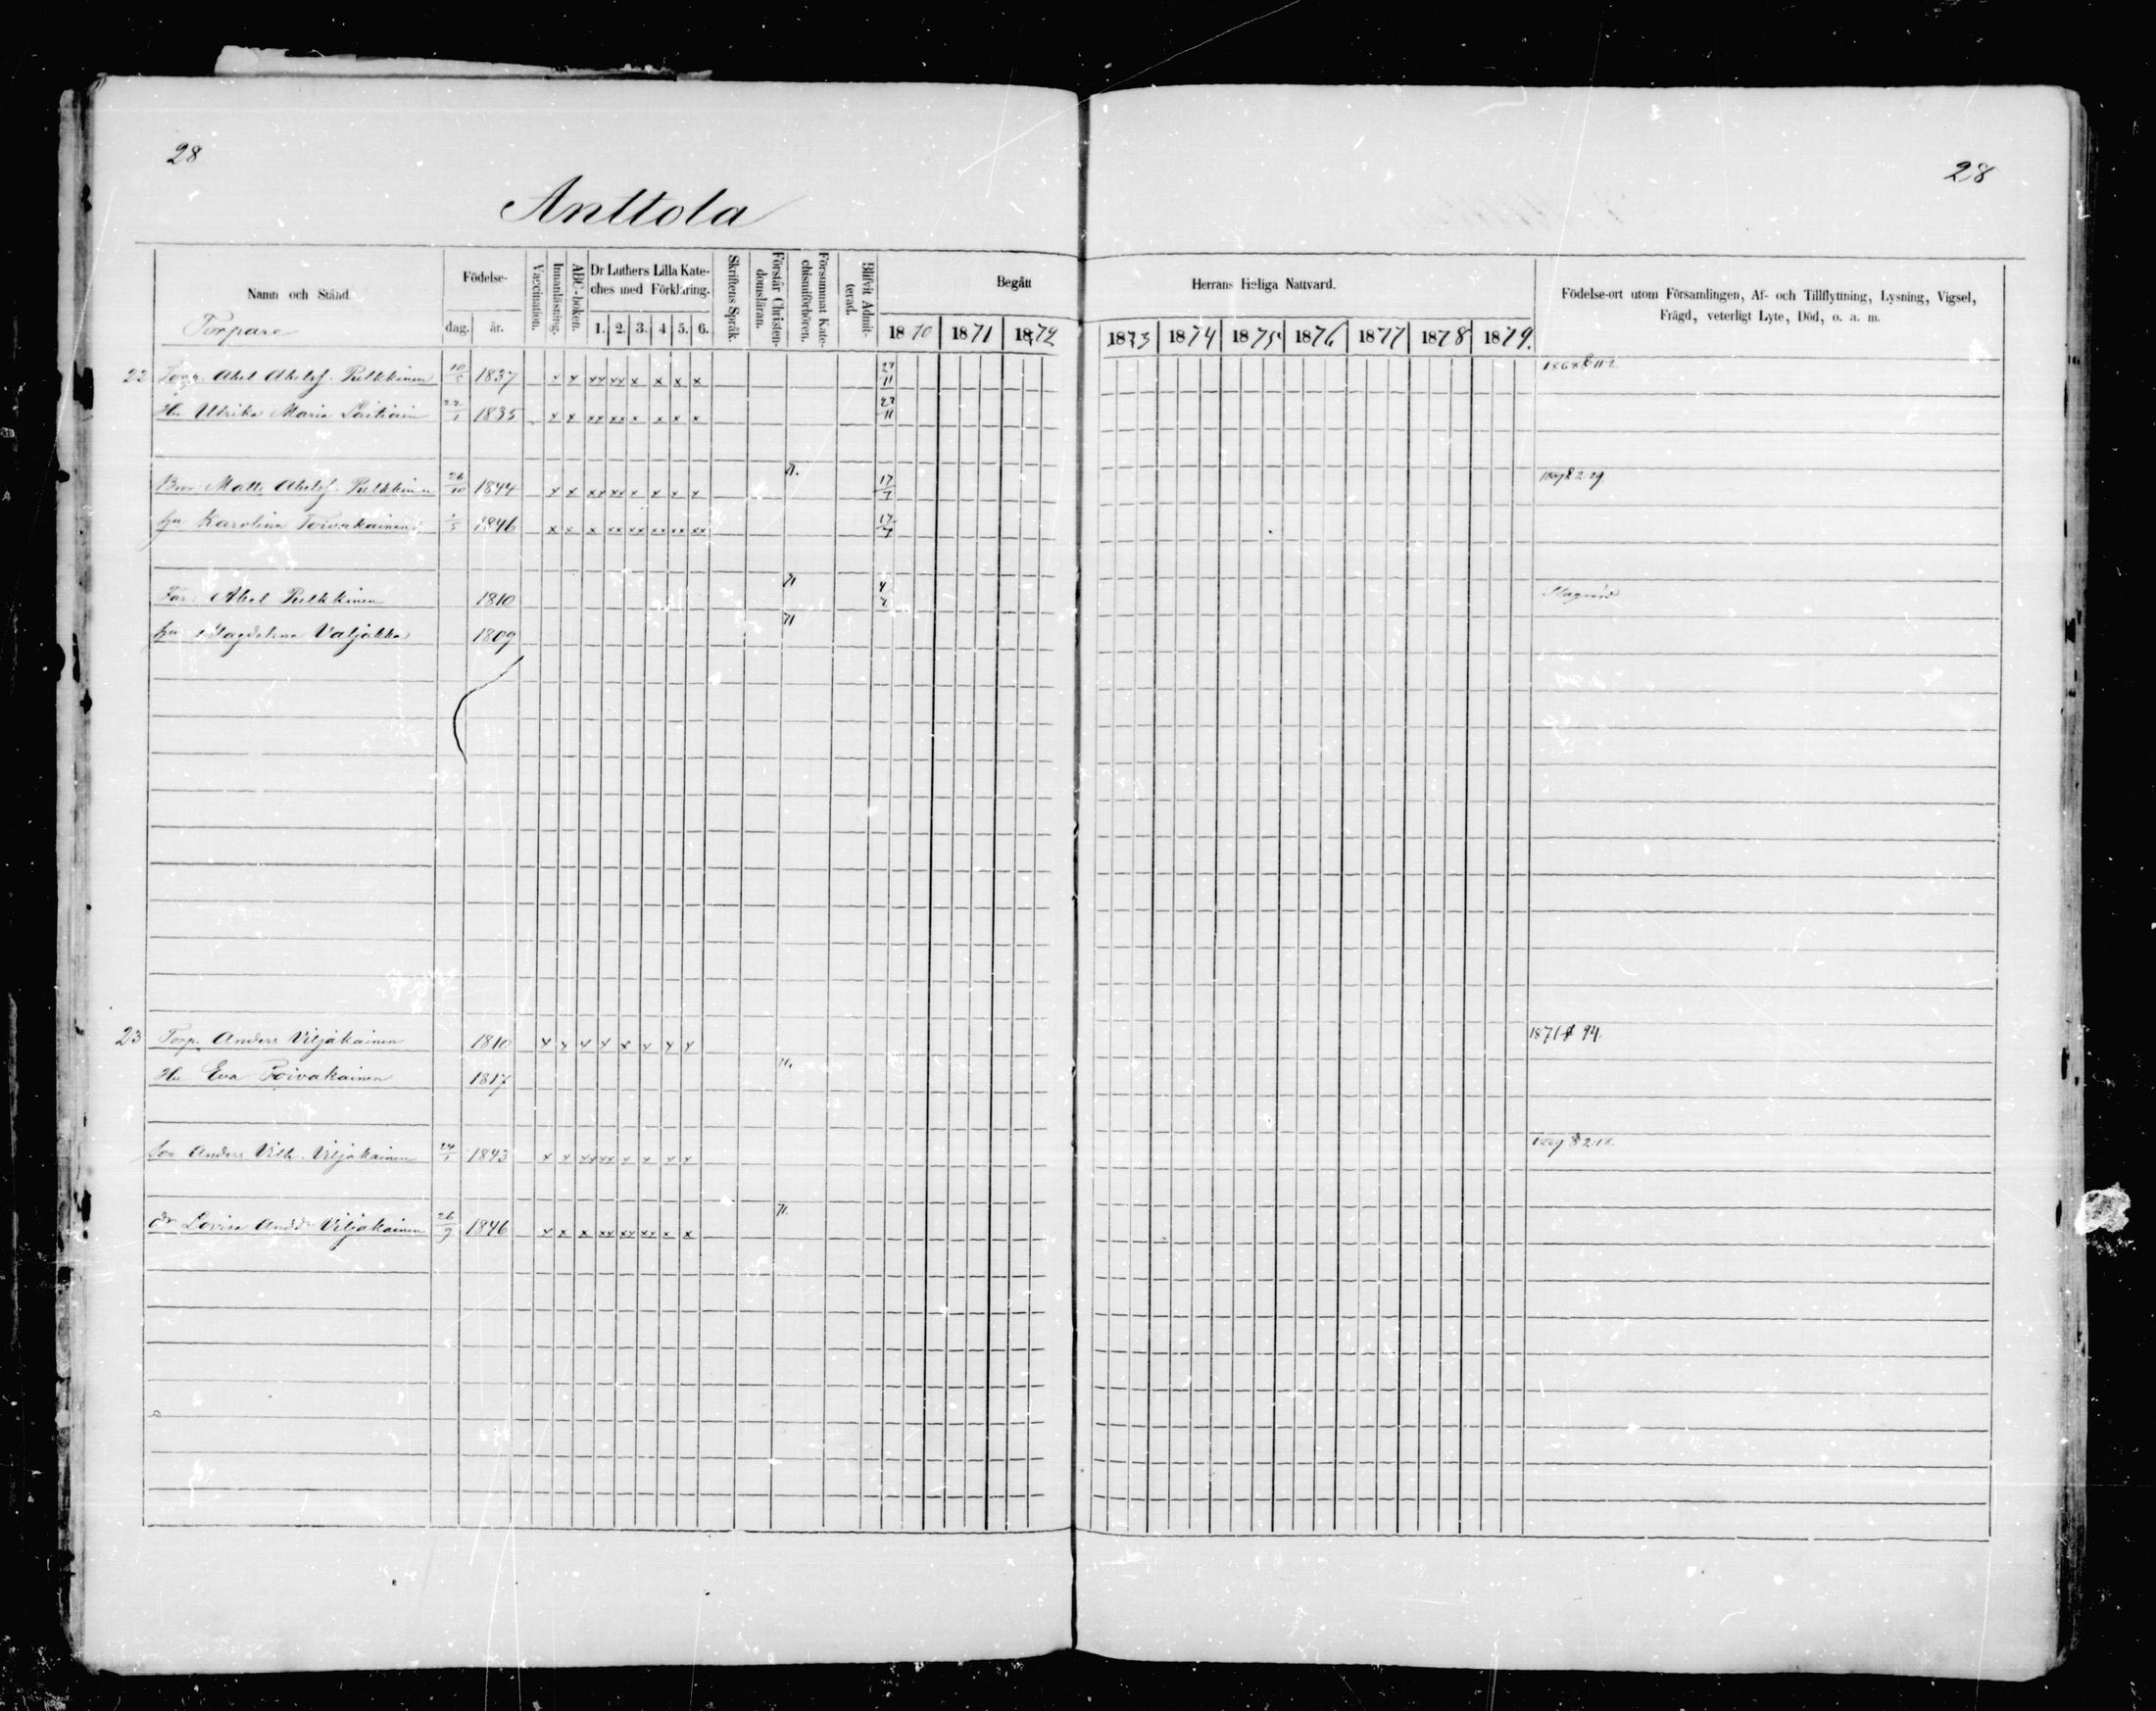 28
28
Anttola
Namn och Stånd.
Torpare
Födelse-
dag. år.
Vaccination.
Innanläsning.
ABC-boken.
Dr Luthers Lilla Kate-
ches med Förklaring.
1. 2. 3. 4 5. 6.
Skriftens Språk.
Förstår Christen-
domsläran.
Försummat Kate-
chismiförhören.
Blifvit Admit-
terad.
Begått
Herrans Heliga Nattvard.
1870 1871 1872
1873 1874 1875 1876 1877 1878 1879.
Födelse-ort utom Församlingen, Af- och Tillflyttning, Lysning, Vigsel,
Frägd, veterligt Lyte, Död, o. a. m.
22 Abel Abelsf. Pulkkinen 10/5 1837 x x xx xx x x x x 27/11
Hu Ulrika Maria 22/1 1835 x x xx xx x x x x 27/11
Bror Matts Abelsf. Pulkkinen 26/10 1844 x x xx xx x x x x 71. 17/7
hu Karolina Toivakainen 1846 x x x xx xx xx xx xx 17/7
Far Abel Pulkkinen 1810 71
hu Magdalena Valjakka 1809 71
23 Torp. Anders Viljakainen 1810 x x x x x x x x 1871 94.
Hu Eva Toivakainen 1817 71.
Son Anders Vilh. Viljakainen 24/1 1843 x x xx xx x x x x
dr Lovisa Andsdr Viljakainen 26/9 1846 x x x xx xx xx x x 71.